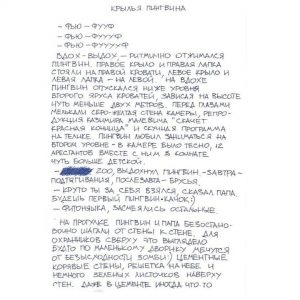 КРЫЛЬЯ ПИНГВИНА
- ФЬЮ - ФУУФ
- ФЬЮ - ФУУУФ
- ФЬЮ - ФУУУУУФ
ВДОХ - ВЫДОХ - РИТМИЧНО ОТЖИМАЛСЯ
ПИНГВИН. ПРАВОЕ КРЫЛО И ПРАВАЯ ЛАПКА
СТОЯЛИ НА ПРАВОЙ КРОВАТИ, ЛЕВОЕ КРЫЛО И
ЛЕВАЯ ЛАПКА - НА ЛЕВОЙ. НА ВДОХЕ
ПИНГВИН ОПУСКАЛСЯ НИЖЕ УРОВНЯ
ВТОРОГО ЯРУСА КРОВАТЕЙ, ЗАВИСАЯ НА ВЫСОТЕ
ЧУТЬ МЕНЬШЕ ДВУХ МЕТРОВ. ПЕРЕД ГЛАЗАМИ
МЕЛЬКАЛИ СЕРО-ЖЕЛТАЯ СТЕНА КАМЕРЫ, РЕПРО-
ДУКЦИЯ КАЗИМИРА МАЛЕВИЧА "СКАЧЕТ
КРАСНАЯ КОННИЦА" И СКУЧНАЯ ПРОГРАММА
НА ТЕЛИКЕ. ПИНГВИН ЛЮБИЛ ЗАНИМАТЬСЯ НА
ВТОРОМ УРОВНЕ - В КАМЕРЕ БЫЛО ТЕСНО, 12
АРЕСТАНТОВ ВМЕСТЕ С НИМ В КОМНАТЕ
ЧУТЬ БОЛЬШЕ ДЕТСКОЙ.
- 200, ВЫДОХНУЛ ПИНГВИН - ЗАВТРА -
ПОДТЯГИВАНИЯ, ПОСЛЕЗАВТРА - БРУСЬЯ
- КРУТО ТЫ ЗА СЕБЯ ВЗЯЛСЯ, СКАЗАЛ ПАПА,
БУДЕШЬ ПЕРВЫЙ ПИНГВИН-КАЧОК :)
- ФИТОНЯШКА, ЗАСМЕЯЛИСЬ ОСТАЛЬНЫЕ.
НА ПРОГУЛКЕ ПИНГВИН И ПАПА БЕЗОСТАНО-
ВОЧНО ШАГАЛИ ОТ СТЕНЫ К СТЕНЕ. ДЛЯ
ОХРАННИКОВ СВЕРХУ ЭТО ВЫГЛЯДЕЛО
БУДТО ПО МАЛЕНЬКОМУ ДВОРИКУ МЕЧУТСЯ
ОТ БЕЗЫСХОДНОСТИ ЗОМБИ :) ЦЕМЕНТНЫЕ
КОРЯВЫЕ СТЕНЫ, РЕШЕТКА НА НЕБЕ И
НЕМНОГО ЗЕЛЕНЫХ ЛИСТОЧКОВ НАВЕРХУ
СТЕН. ДАЖЕ В ЦЕМЕНТЕ ИНОГДА ЧТО-ТО